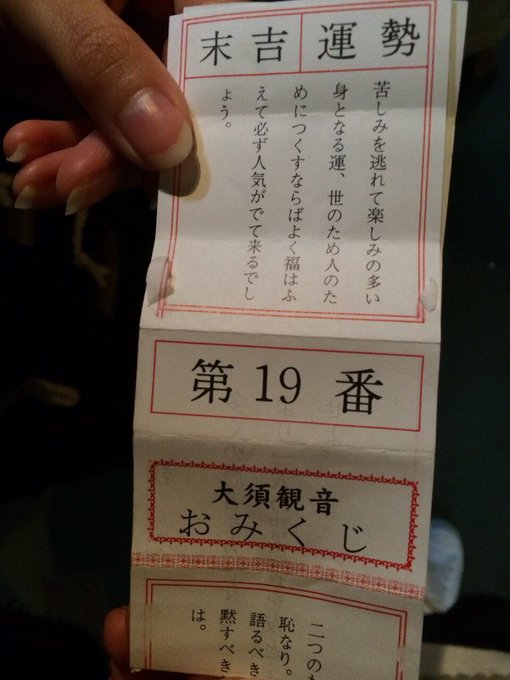 末吉 運勢
苦しみを逃れて楽しみの多い
身となる運、世のため人のた
めにつくすならばよく福はふ
えて必ず人気がでて来るでし
ょう。
第19番
大須観音
おみくじ
二つのも
恥なり。
語るべき
黙すべき
は。